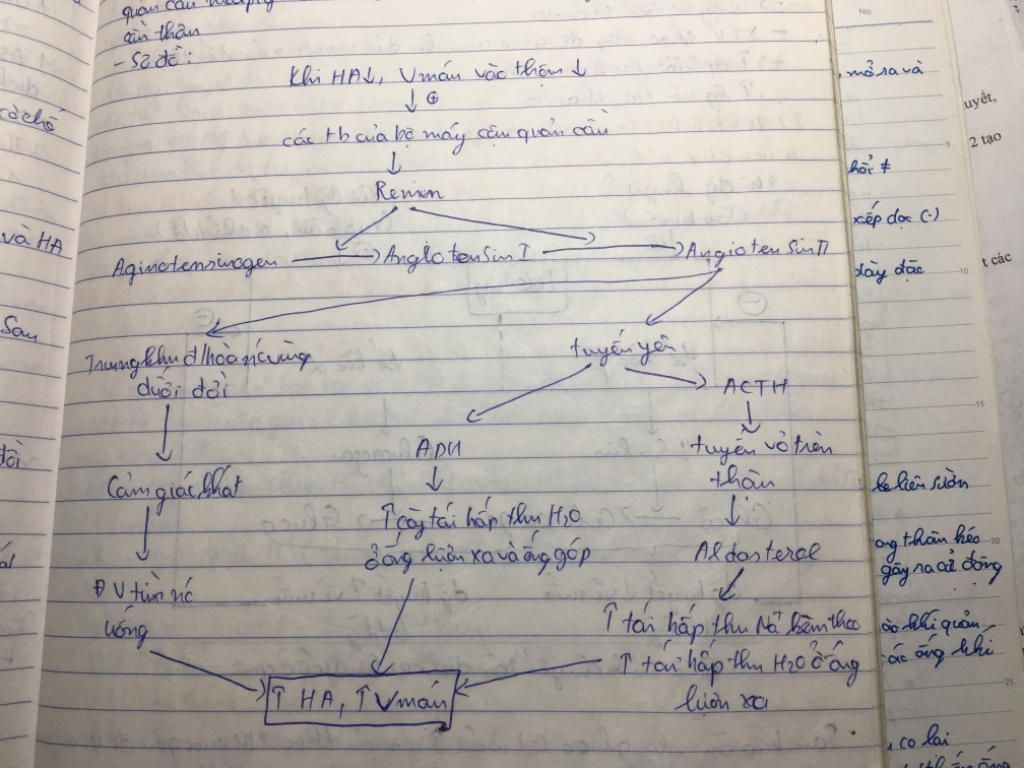 quản cầu
cận thận
- Sơ đồ:
Khi HA↓, V máu vào thận ↓
↓ ⊕
các tb của bộ máy cận quản cầu
Renin
Aginotensinogen → Anglotensin I → Angiotensin II
Trung khu đ/hòa nc vùng
dưới đồi
tuyến yên
ACTH
ADH
tuyến vỏ trên
thận
Cảm giác khát
↑ cg tái hấp thu H2O
ở ống lượn xa và ống góp
Aldosterol
ĐV tìm nc
uống
↑ tái hấp thu Na+ kèm theo
↑ tái hấp thu H2O ở ống
lượn xa
↑ HA, ↑ V máu
và HA
Sau
tồi
No.
, mở ra và
hồi ≠
xếp dọc (-)
dày đặc
5
10
15
ke liên sườn
ong thân kéo
20
gây ra cử động
ào khí quản
ác ống khí
25
, co lại
uyết,
2 tạo
t các